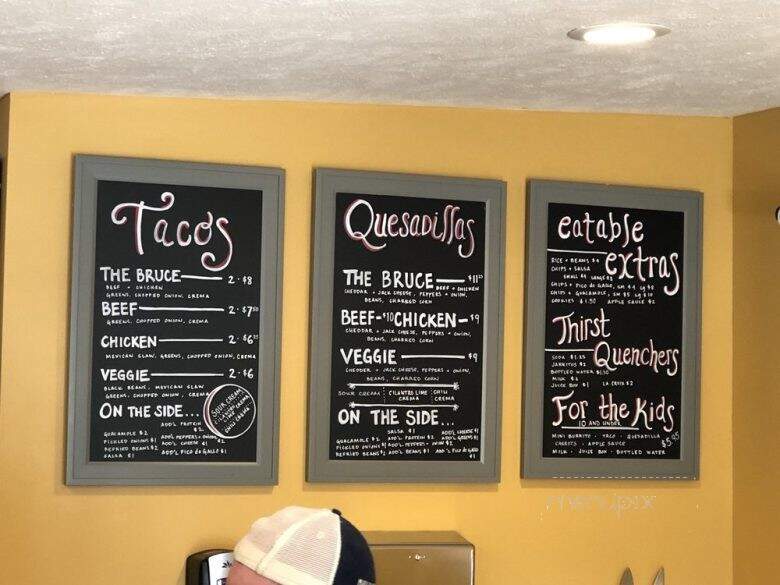 Tacos
THE BRUCE 2 · $8
BEEF + CHICKEN
GREENS, CHOPPED ONION, CREMA
BEEF 2 · $7.50
GREENS, CHOPPED ONION, CREMA
CHICKEN 2 · $6.25
MEXICAN SLAW, GREENS, CHOPPED ONION, CREMA
VEGGIE 2 · $6
BLACK BEANS, MEXICAN SLAW
GREENS, CHOPPED ONION, CREMA
SOUR CREAM
CILANTRO LIME CREMA
CHILI CREMA
ON THE SIDE...
GUACAMOLE $2
PICKLED ONIONS $1
REFRIED BEANS $2
SALSA $1
ADD'L PROTEIN $2
ADD'L PEPPERS + ONION
ADD'L CHEESE $1
ADD'L PICO de GALLO $1
Quesadillas
THE BRUCE $11
BEEF + CHICKEN
CHEDDAR + JACK CHEESE, PEPPERS + ONION,
BEANS, CHARRED CORN
BEEF-$10 CHICKEN-$9
CHEDDAR + JACK CHEESE, PEPPERS + ONION,
BEANS, CHARRED CORN
VEGGIE $9
CHEDDER + JACK CHEESE, PEPPERS + ONION,
BEANS, CHARRED CORN
SOUR CREAM CILANTRO LIME CREMA CHILI CREMA
ON THE SIDE...
SALSA $1 ADD'L CHEESE $1
GUACAMOLE $2 ADD'L PROTEIN $2 ADD'L GREENS $1
PICKLED ONIONS $1 ADD'L PEPPERS + ONION $2
REFRIED BEANS $2 ADD'L BEANS $1 ADD'L PICO de GALLO $1
eatable
extras
RICE + BEANS $4
CHIPS + SALSA
SMALL $4 LARGE
CHIPS + PICO de GALLO, SM $4 lg $8
CHIPS + GUACAMOLE, SM $5 lg $10
COOKIES $1.50 APPLE SAUCE $2
Thirst
Quenchers
SODA $1.25
JARRITOS $2
BOTTLED WATER $1.50
MILK $1
JUICE BOX $1 LA CROIX $2
For the Kids
10 AND UNDER
MINI BURRITO · TACO · QUESADILLA
CARROTS · APPLE SAUCE
MILK · JUICE BOX · BOTTLED WATER
$5.95
menupix